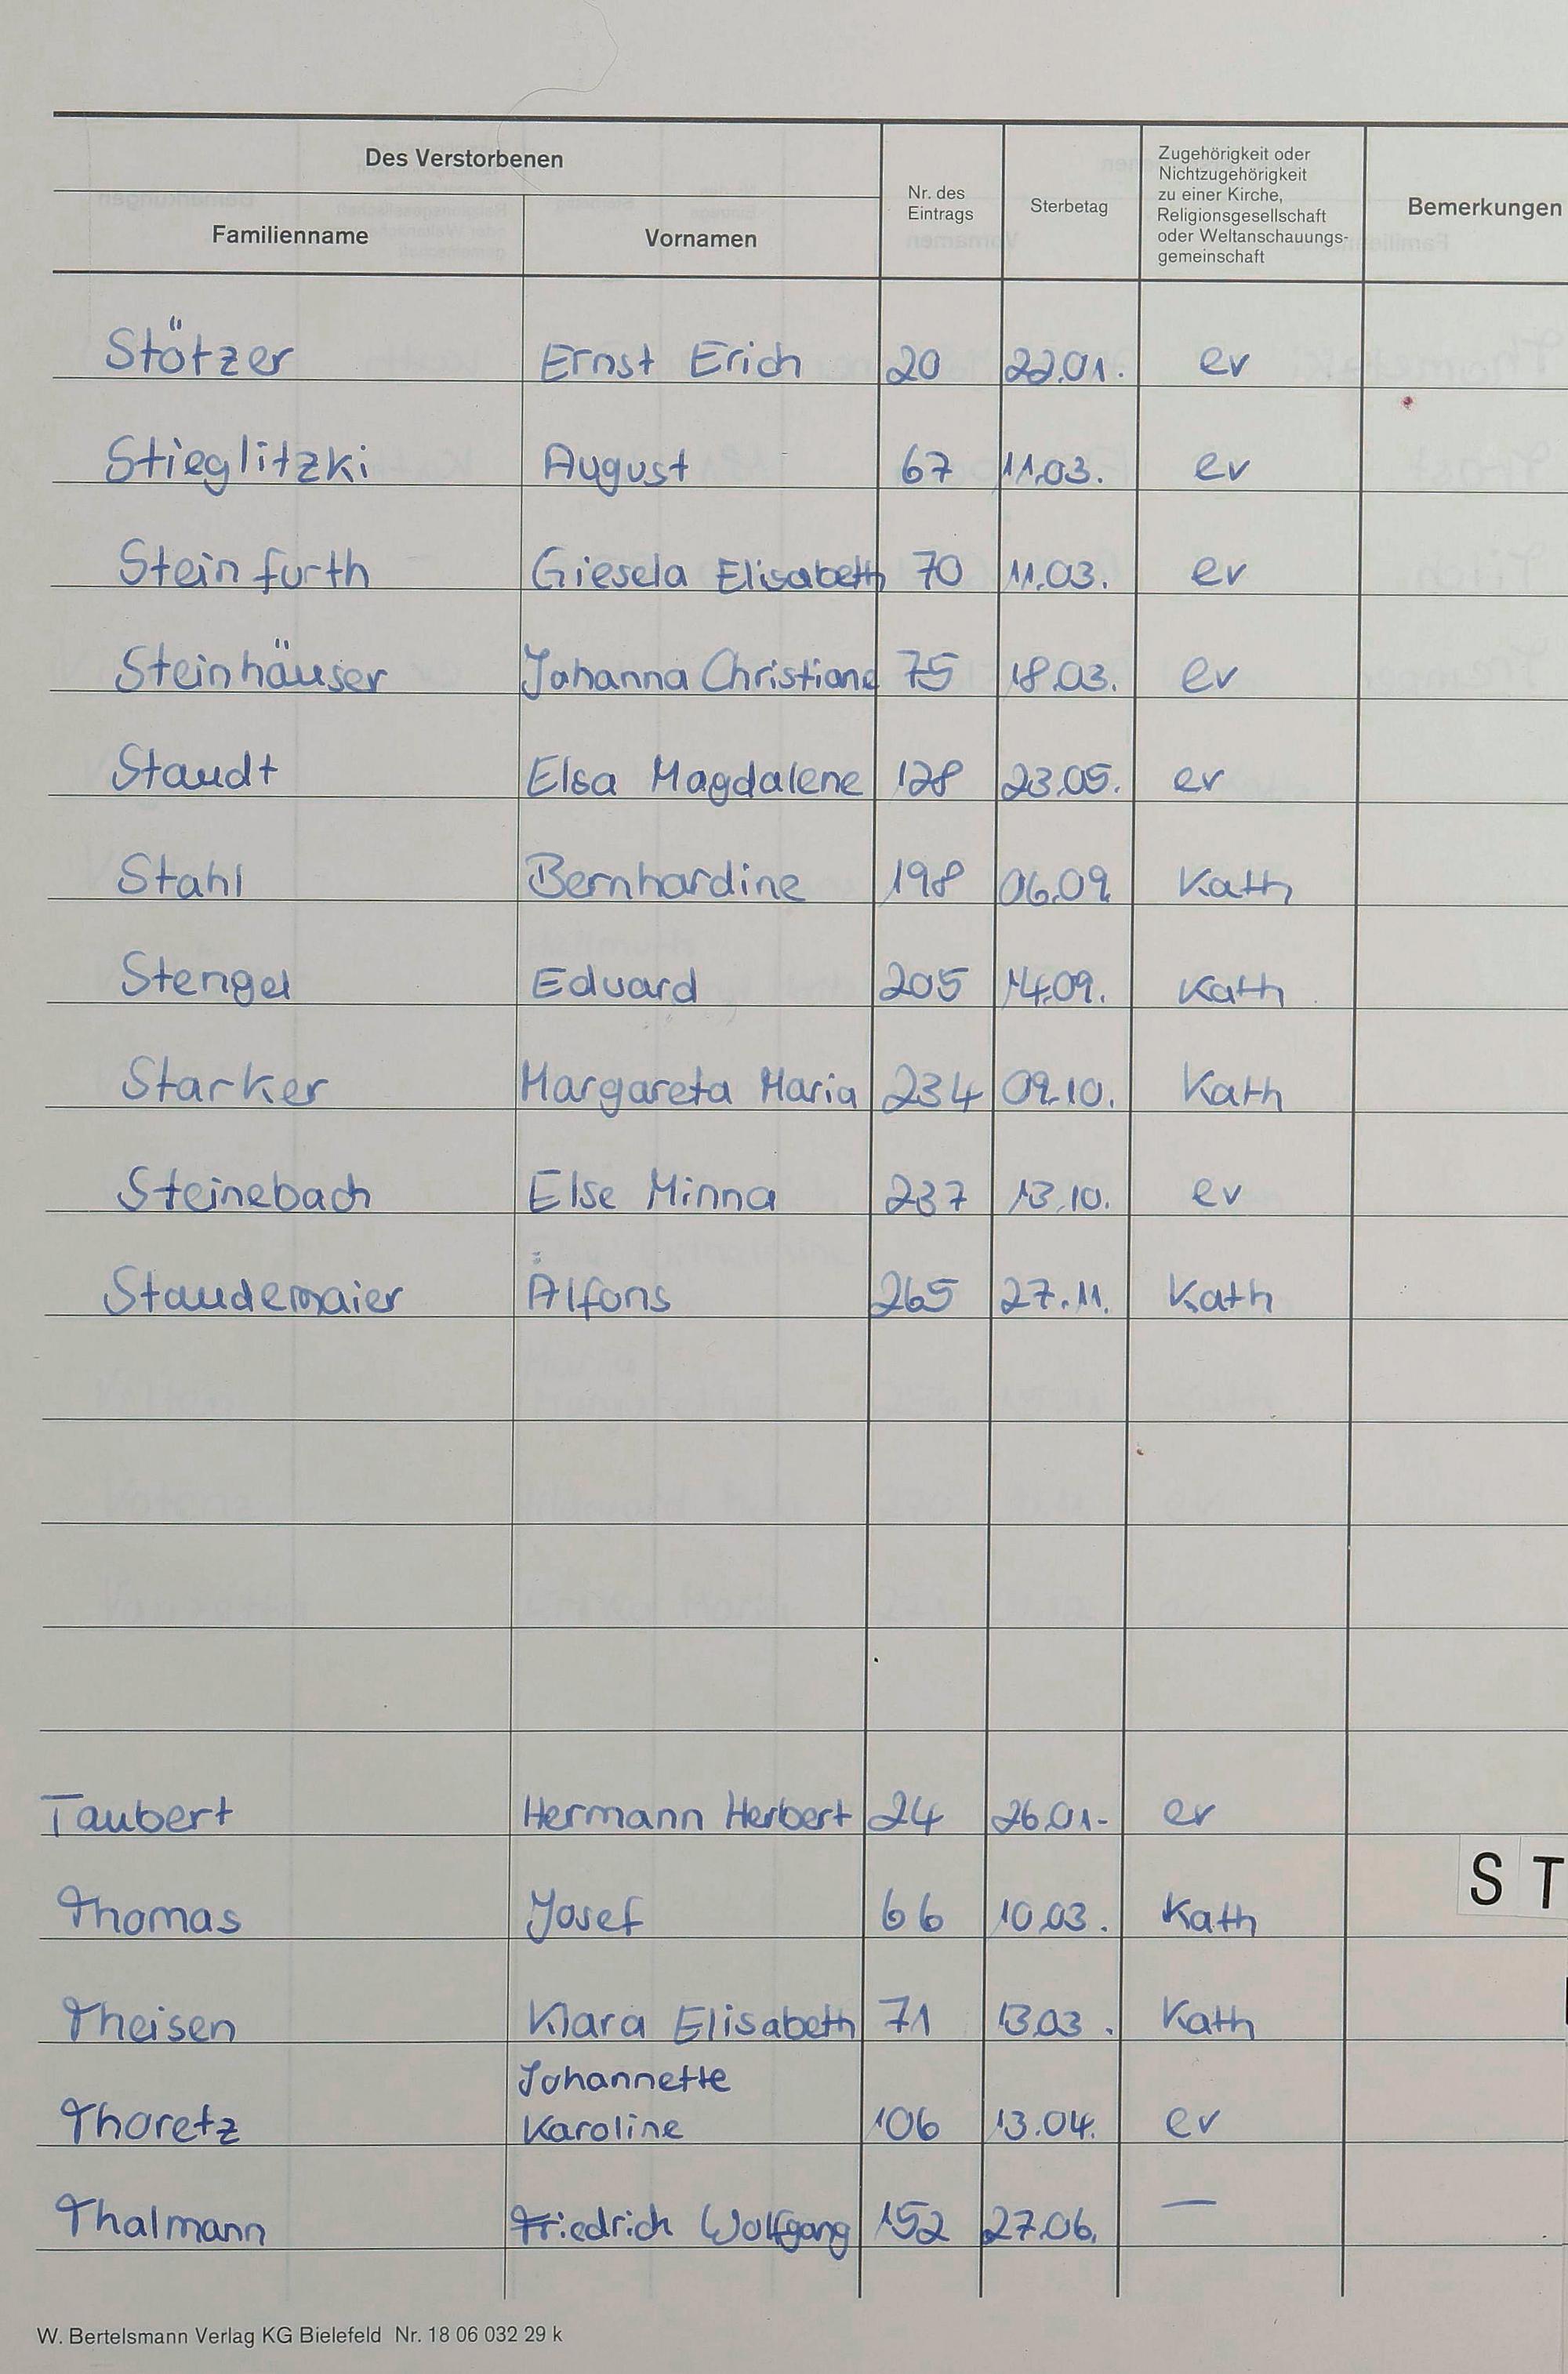 Des Verstorbenen
Familienname
Vornamen
Nr. des
Eintrags
Sterbetag
Zugehörigkeit oder
Nichtzugehörigkeit
zu einer Kirche,
Religionsgesellschaft
oder Weltanschauungs-
gemeinschaft
Bemerkungen
Stötzer Ernst Erich 20 22.01. ev
Stieglitzki August 67 11.03. ev
Steinfurth Giesela Elisabeth 70 11.03. ev
Steinhäuser Johanna Christiane 75 18.03. ev
Staudt Elsa Magdalene 128 23.05. ev
Stahl Bernhardine 198 06.09. Kath
Stengel Eduard 205 14.09. Kath
Starker Margareta Maria 234 09.10. Kath
Steinebach Else Minna 237 13.10. ev
Staudemaier Alfons 265 27.11. Kath
Taubert Hermann Herbert 24 26.01- ev
Thomas Josef 66 10.03. Kath
S T
Theisen Klara Elisabeth 71 13.03. Kath
Johannette
Thoretz Karoline 106 13.04. ev
Thalmann Friedrich Wolfgang 152 27.06. —
W. Bertelsmann Verlag KG Bielefeld Nr. 18 06 032 29 k